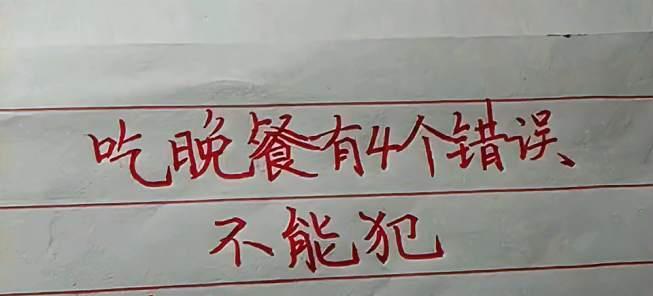 吃晚餐有4个错误、
不能犯